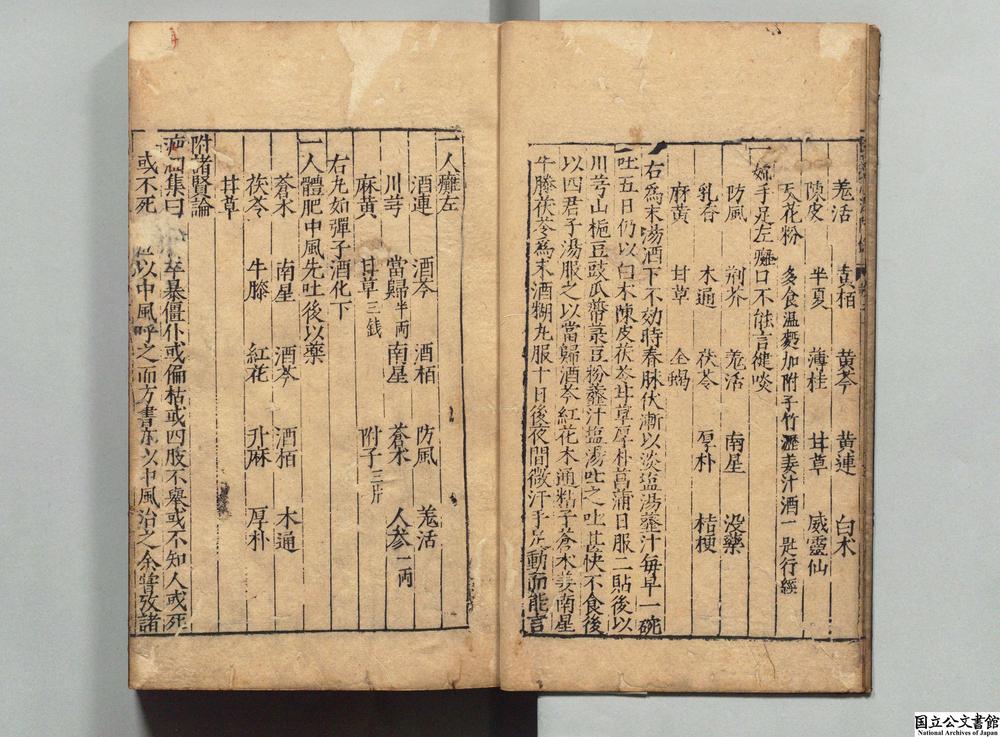 羗活 黄栢 黄芩 黄連 白术
陳皮 半夏 薄桂 甘草 威靈仙
天花粉 多食温麪加附子竹瀝姜汁酒一匙行經
一婦手足左癱口不能言健啖
防風 荆芥 羗活 南星 没藥
乳香 木通 茯苓 厚朴 桔梗
麻黄 甘草 全蝎
右爲末湯酒下不効時春脉伏漸以淡塩湯虀汁每早一碗
吐五日仍以白术陳皮茯苓甘草厚朴菖蒲日服二貼後以
川芎山梔豆豉瓜蒂菉豆粉虀汁塩湯吐之吐甚快不食後
以四君子湯服之以當歸酒芩紅花木通粘子蒼术姜南星
牛膝茯苓爲末酒糊丸服十日後夜間微汗手足動而能言
一人癱左
酒連 酒芩 酒栢 防風 羗活
川芎 當歸半兩 南星 蒼术 人参一兩
麻黄 甘草三錢 附子三片
右丸如彈子酒化下
一人體肥中風先吐後以藥
蒼术 南星 酒芩 酒栢 木通
茯苓 牛膝 紅花 升麻 厚朴
甘草
附諸賢論
集曰 卒暴僵仆或偏枯或四肢不舉或不知人或死
或不死 以中風呼之而方書亦以中風治之余嘗攷諸
国立公文書館
National Archives of Japan